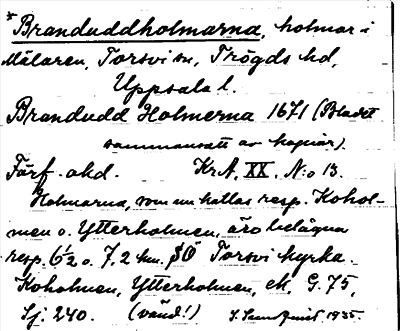 *Branduddholmarna, holmar i
Mälaren, Torsvi sn, Trögds hd,
Uppsala l.
Brandudd Holmerna 1671 (Bladet
sammansatt av kopior).
Förf. okd. KrA, XX, N:o 13.
Holmarna, som nu kallas resp. Kohol-
men o. Ytterholmen, äro belägna
resp. 6½ o. 7,2 km. SÖ Torsvi kyrka.
Koholmen, Ytterholmen, ek. G. 75,
Sj. 240. (vänd!) 1935.